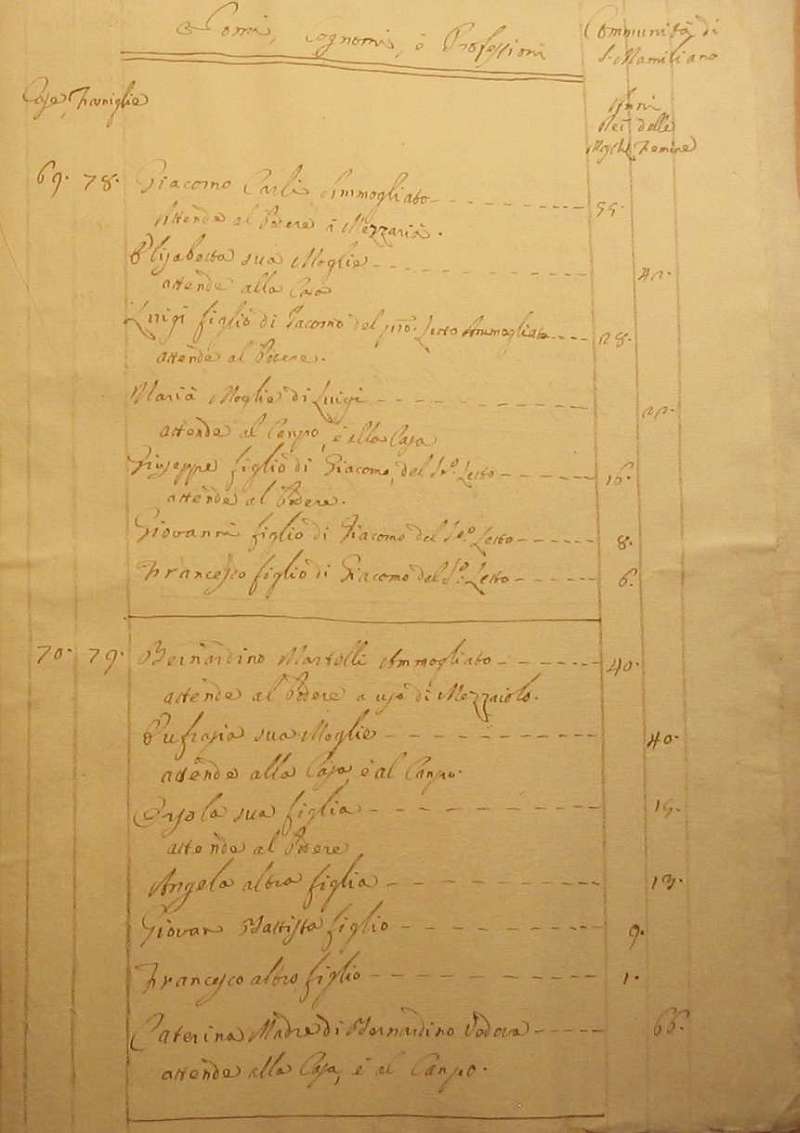 Nomi, cognomi, e Professioni
Communità di
S. Mamiliano
Case, Famiglie
Anni
Dei delle
Maschi, Femine
69. 78. Giacomo Carli Ammogliato 55.
Attende al Podere à Mezzaria.
Elisabetta sua Moglie
attende alla Casa
Luigi figlio di Giacomo del Letto Ammogliato 28.
attende al Podere.
Maria Moglie di Luigi
attende al Canpo, è alla Casa
Giuseppe figlio di Giacomo del So. Letto 16.
attende al Podere.
Giovanni figlio di Giacomo del So. Letto 8.
Francesco figlio di Giacomo del So. Letto 6.
70. 79. Bernardino Martelli Ammogliato 40.
attende al Podere a uso di Mezzaiolo.
Eufrasia sua Moglie 40.
attende alla Casa, è al Canpo.
Orsola sua figlia 15.
attende al Podere
Angela altra figlia 13.
Giovan Battista figlio 9.
Francesco altro figlio 1.
Caterina Madre di Bernardino Vedova 66.
attende alla Casa, è al Canpo.